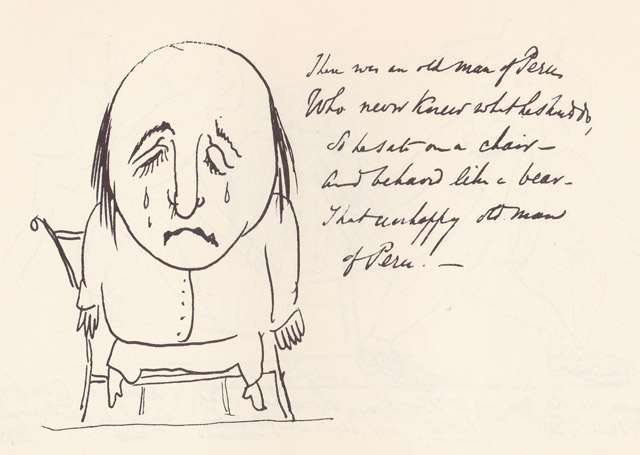 There was an old man of Peru,
Who never knew what he should do,
So he sat on a chair—
And behaved like a bear—
That unhappy old man
of Peru.—